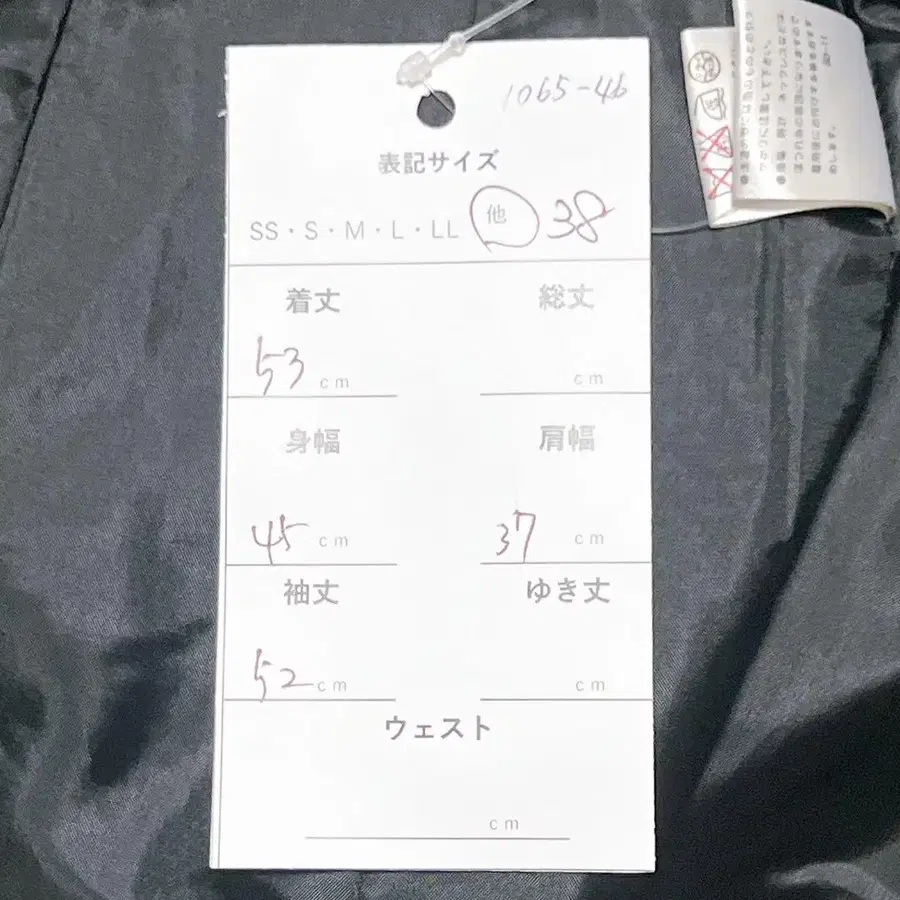 1065-46
表記サイズ
SS・S・M・L・LL 他 38
着丈 総丈
53 cm cm
身幅 肩幅
45 cm 37 cm
袖丈 ゆき丈
52 cm cm
ウェスト
cm